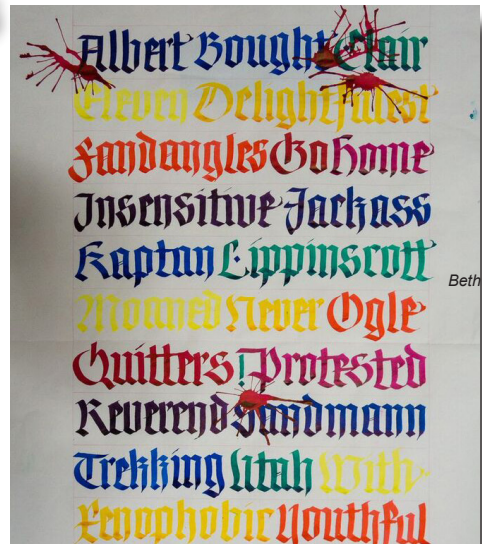 Albert Bought Clair
Eleven Delightfulest
Fandangles Go Home
Insensitive Jackass
Kaptan Lippinscott
Beth
Moaned Never Ogle
Quitters! Protested
Reverend Sandmann
Trekking Utah With
Xenophobic Youthful